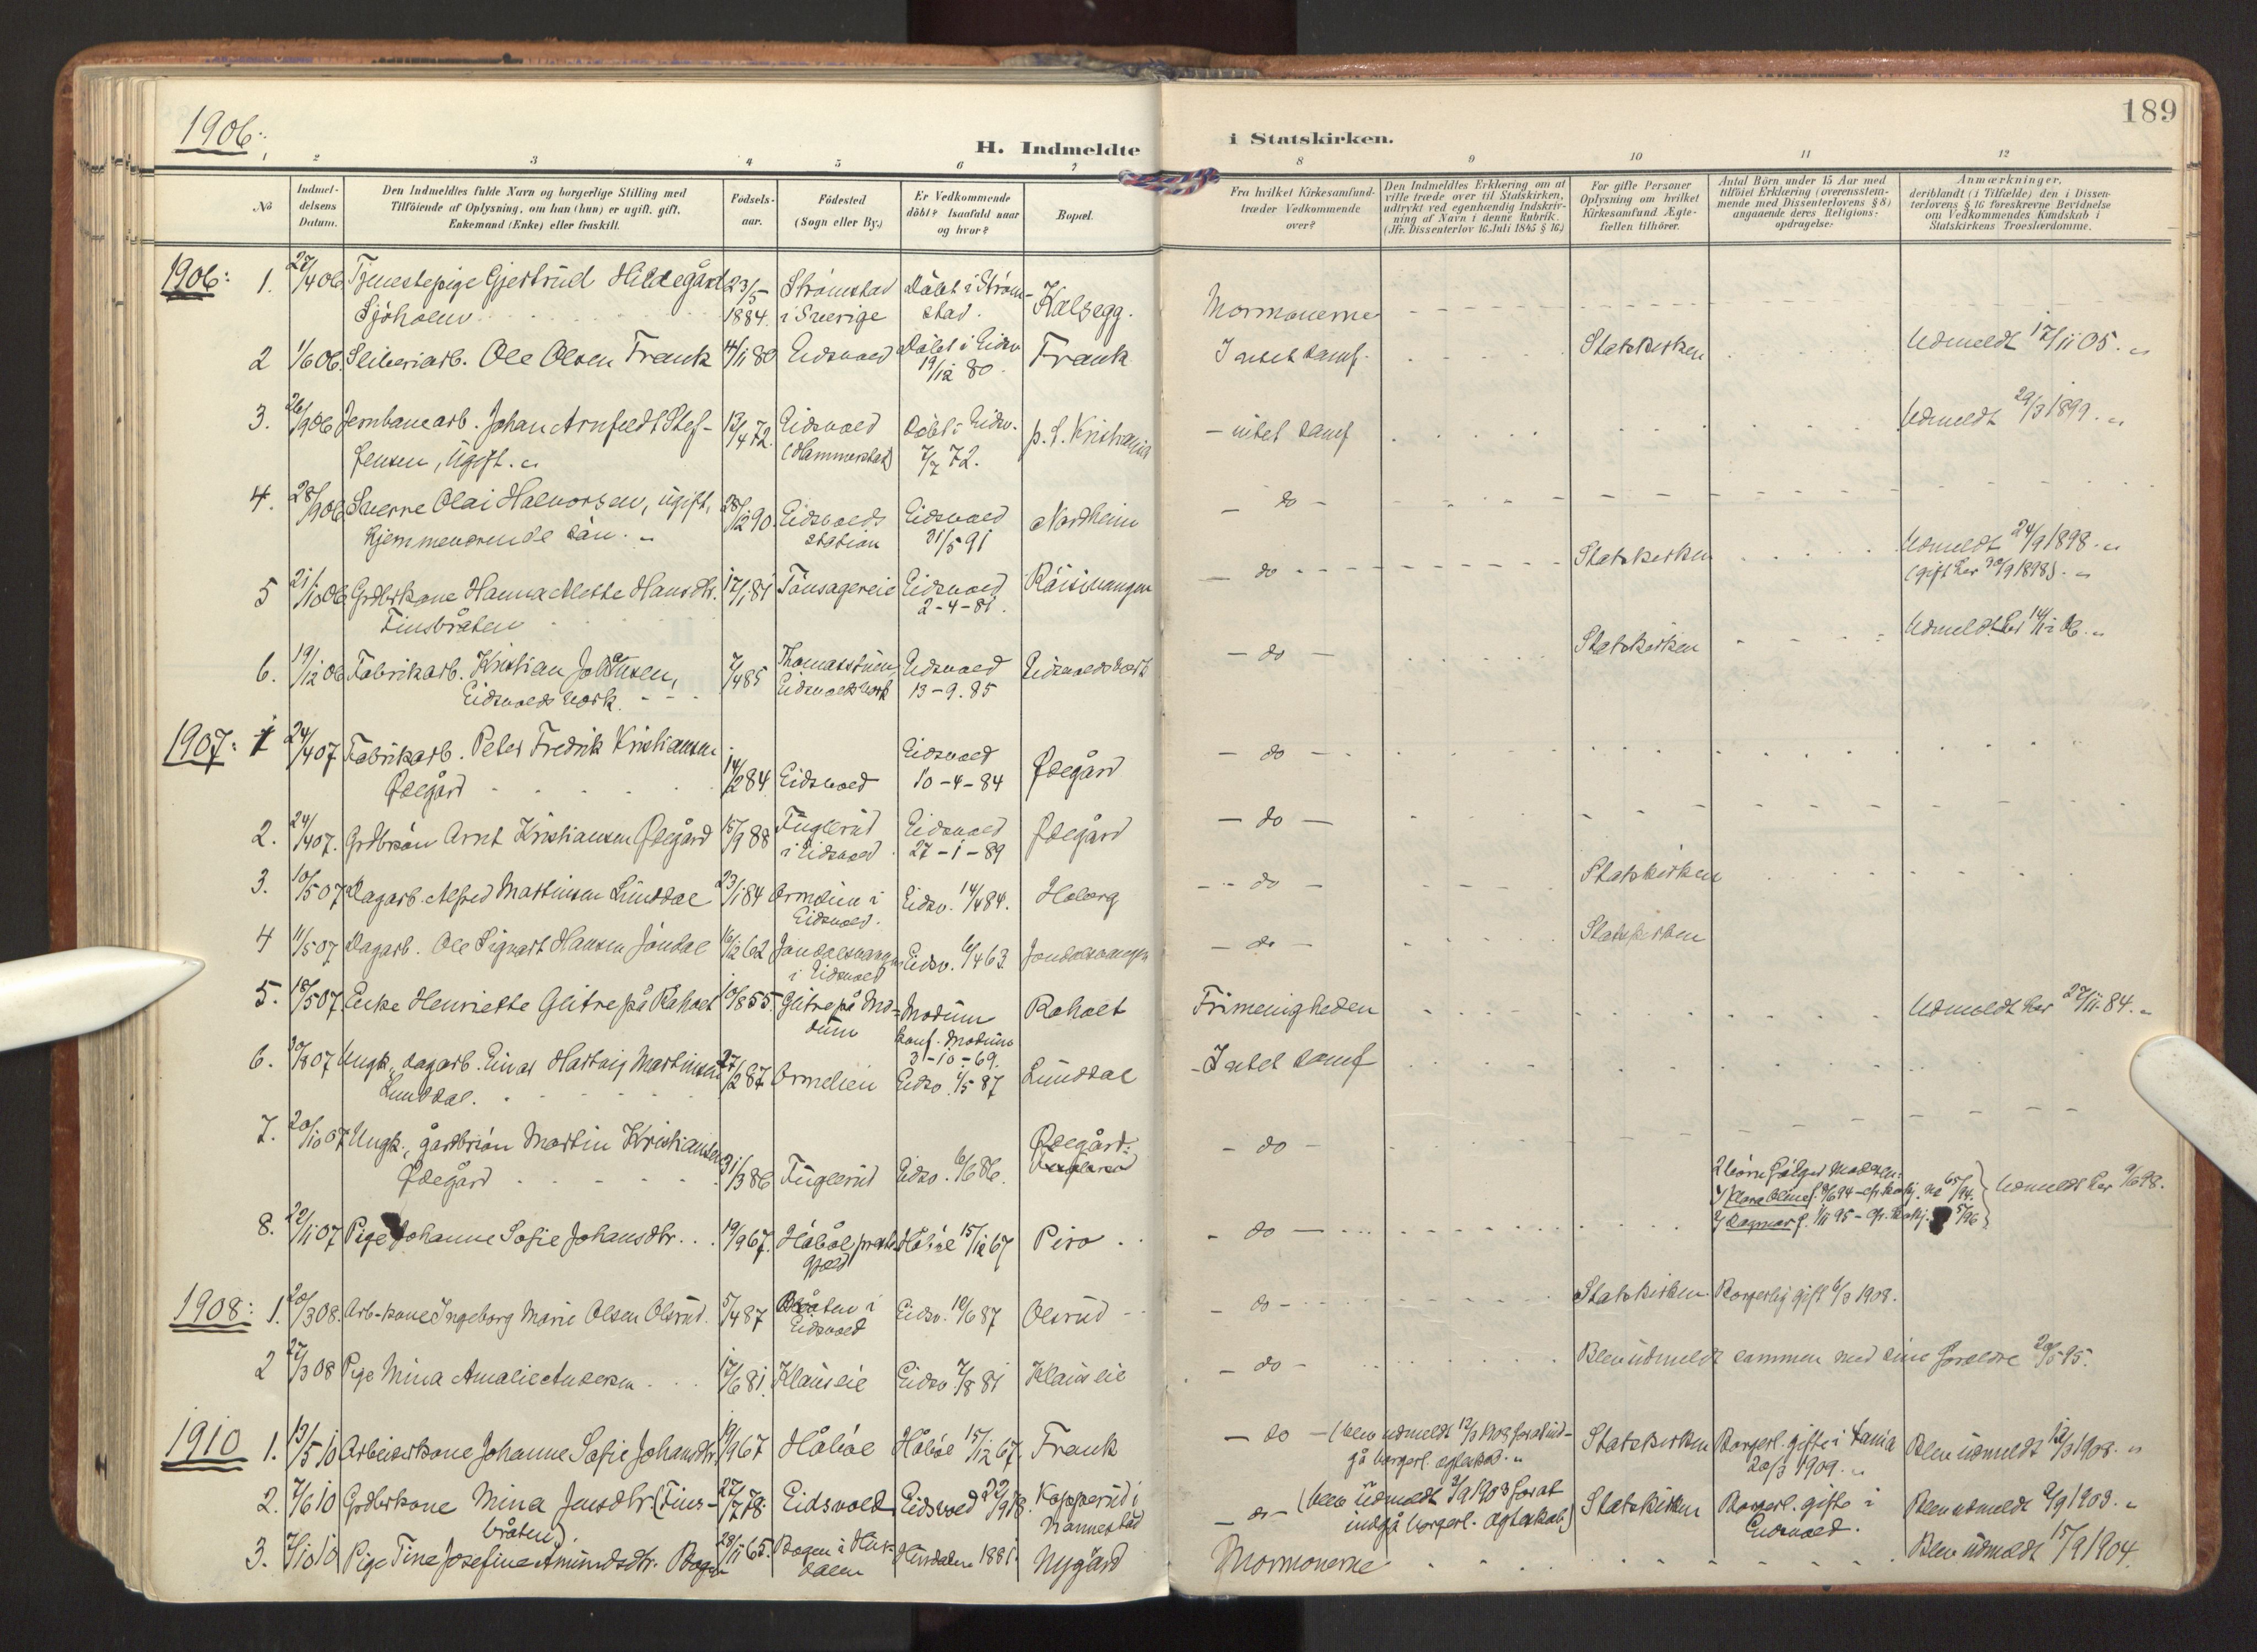 1906:
189
H. Indmeldte
i Statskirken.
2 3 4 5 6 7 8 9 10 11 12
No
Indmel-
delsens
Datum.
Den Indmeldtes fulde Navn og borgerlige Stilling med
Tilföiende af Oplysning, om han (hun) er ugift, gift,
Enkemand (Enke) eller fraskilt.
Födsels-
aar.
Födested
(Sogn eller By.)
Er Vedkommende
döbt? Isaafald naar
og hvor?
Bopæl.
Fra hvilket Kirkesamfund
træder Vedkommende
over?
Den Indmeldtes Erklæring om at
ville træde over til Statskirken,
udtrykt ved egenhændig Indskriv-
ning af Navn i denne Rubrik.
(Jfr. Dissenterlov 16 Juli 1845 § 16.)
For gifte Personer
Oplysning om hvilket
Kirkesamfund Ægte-
fællen tilhörer.
Antal Börn under 15 Aar med
tilföiet Erklæring (overensstem-
mende med Dissenterlovens § 8)
angaaende deres Religions-
opdragelse.
Anmærkninger,
deriblandt (i Tilfælde) den i Dissen-
terlovens § 16 foreskrevne Bevidnelse
om Vedkommendes Kundskab i
Statskirkens Troeslærdomme.
1906: 1. 27/4 06 Tjenestepige Gjertrud Hildegård 23/5- Strömstad Döbt i Ström- Kalsegg. Mormonerne
Sjöholm 1884. i Sverige stad.
2 1/6 06. Sliberiarb. Ole Olsen Frank 4/11 80 Eidsvold Döbt i Eidsv Frank Intet samf. Statskirken Udmeldt 17/11 05.
19/12 80.
3. 26/9 06 Jernbanearb. Johan Arnfeldt Stef- 13/4 72. Eidsvold Döbt i Eidsv. p.t. Kristiania - intet samf Udmeldt 29/3 1899.
fensen, Ugift. (Hammerstad) 7/7 72.
4. 28/9 06 Sverre Olai Halvorsen, ugift, 28/12 90. Eidsvolds Eidsvold Nordheim - do -
hjemmeværende sön. station 31/5 91
5 21/10 06 Grdbrkone Hanna Mette Hansdtr. 17/1 81 Tönsagereie Eidsvold Räisivangen - do - Statskirken Udmeldt 24/9 1898.
Finsbråten 2-4-81. (gift her 30/9 1898).
6. 19/12 06 Fabrikarb. Kristian Johansen, 7/4 85 Thomasstuen, Eidsvold Eidsvoldsværk - do - Statskirken Udmeldt her
Eidsvolds værk. Eidsvoldsværk 13-9.85
1907: 1 24/4 07. Fabrikarb. Peter Fredrik Kristiansen 14/2 84 Eidsvold Eidsvold Ödegård - do -
Ödegård 10-4-84
2. 24/4 07. Grdbrsön Arnt Kristiansen Ödegård 15/9 88 Fuglerud Eidsvold Ödegård - do -
i Eidsvold 27-1-89
3. 10/5 07 Dagarb. Alfred Martinsen Lunddal 23/1 84 Ormlien i Eidsv. 14/4 84. Hoberg - do - Statskirken
Eidsvold.
4 11/5 07 Dagarb. Ole Sigvart Hansen Jöndal 16/12 62 Jöndalsvangen Eidsv. 6/4 63. Jöndalsvangen - do - Statskirken
i Eidsvold
5. 18/5 07. Enke Henriette Glitre på Råholt 10/8 55. Glitre på Mo- Modum Råholt Frimenigheden Udmeldt her 27/11-84.
dum konf. Modum
31-10-69.
6. 30/8 07 Ungk., dagarb. Einar Hartvig Martinsen 27/2 87 Ormlien Eidsv. 1/5 87 Lunddal - Intet samf
Lunddal.
7. 20/10 07 Ungk., gårdbrsön Martin Kristiansen 31/3 86 Fuglerud Eidsv. 6/6 86. Ödegård. - do -
Ödegård
8. 22/11 07 Pige Johanne Sofie Johansdtr. 19/9 67. Håböl præste- Håböl 15/12 67 Piro - do - 2 börn fölger moderen: Udmeldt her 9/6 98.
gjeld
1908: 1. 20/3 08. Arb-kone Ingeborg Marie Olsen Olsrud. 5/4 87 Bråten i Eidsv. 10/6 87 Olsrud - do - Statskirken. Borgerlig gift 6/3 1908.
Eidsvold
2 27/3 08 Pige Mina Amalie Andersen 17/6 81. Klauseie Eidsv. 7/8 81 Klauseie - do - Blev udmeldt sammen med sine foreldre 20/5 95.
1910 1. 13/5 10 Arbeiderkone Johanne Sofie Johansdtr. 19/9 67 Håböl Håböl 15/12 67. Frank - do - (blev udmeldt 12/3 1908 for at ind- Statskirken Borgerl. gifte i Blev udmeldt 12/3 1908.
gå borgerl. ægteskab. 20/3 1909.
2. 7/6 10 Grdbrkone Mina Jensdtr (Fins- 27/7 78. Eidsvold Eidsvold 22/9 78. Kopperud i - do - (blev udmeldt 2/9 1903 for at Statskirken Borgerl. gifte i Blev udmeldt 2/9 1903.
bråten). Nannestad indgå borgerl. ægteskab) Eidsvold.
3. 7/10 10 Pige Tine Josefine Amundsdtr. Bogen 28/11 65. Bogen i Hur- Hurdalen 1881. Nygård Mormonerne Blev udmeldt 15/9 1904.
dalen